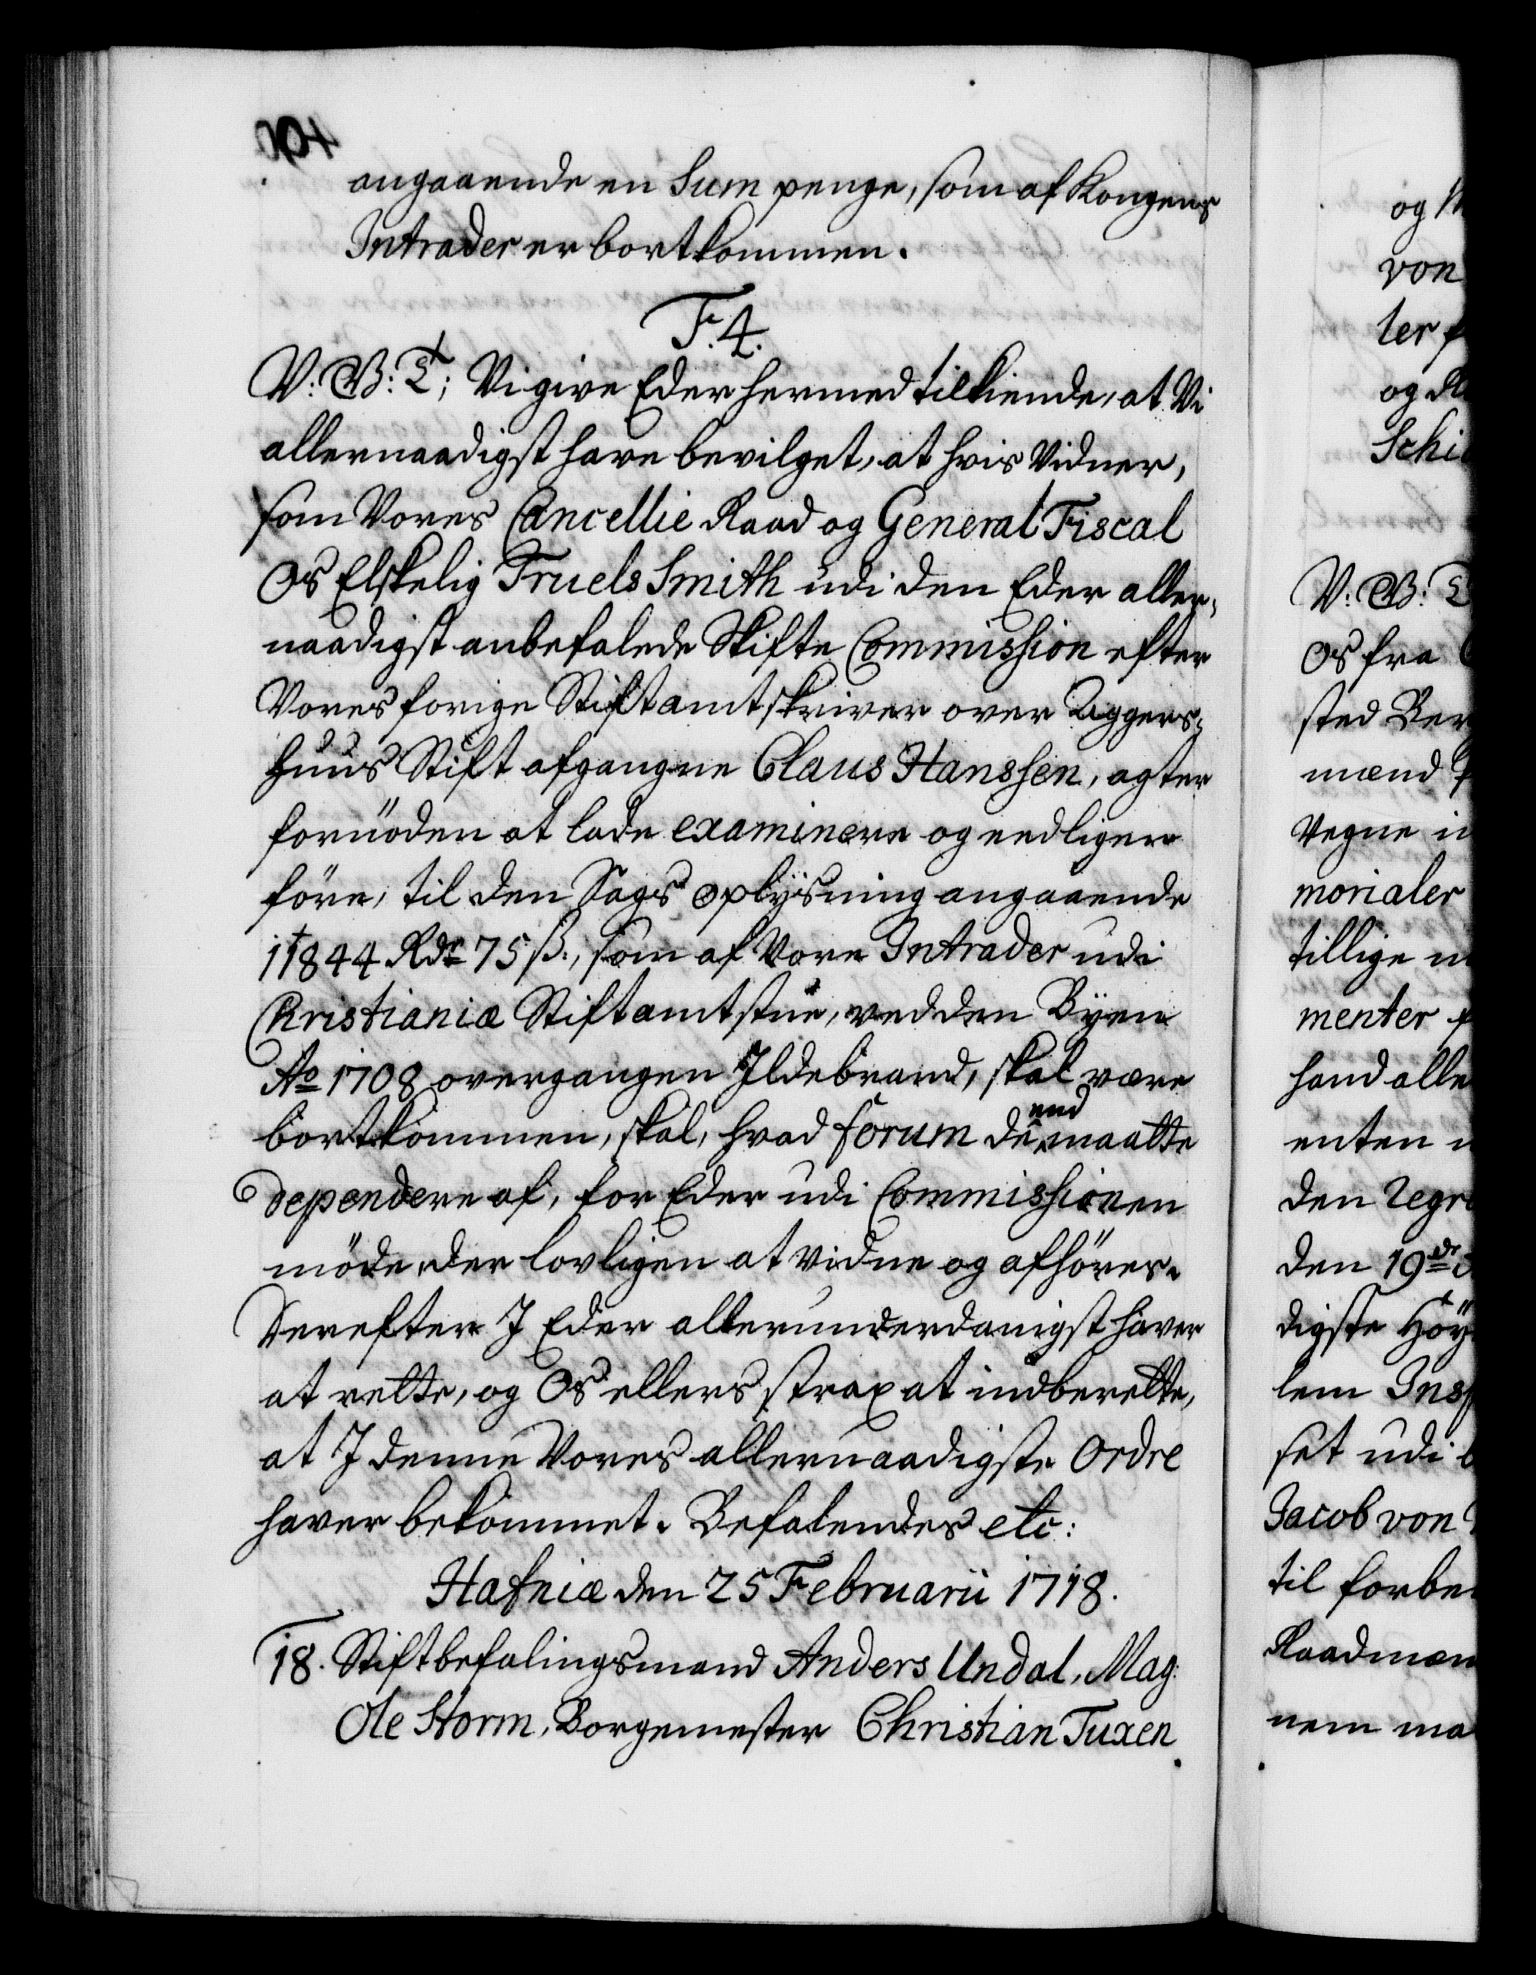 angaaende en Sum penge, som af Kongens
Intrader er bortkommen.
F. 4.
V: G: T; Vi give Eder hermed tilkiende, at Vi
allernaadigst have bevilget, at hvis Vidner,
som Vores Cancellie Raad og General Fiscal
Os Elskelig Truels Smith udi den Eder aller-
naadigst anbefalede Skifte Commission efter
Vores forige Stiftamtskriver over Aggers-
huus Stift afgangne Claus Hanssen, agter
fornöden at lade examinere og eedligen
före, til den Sags oplysning angaaende
11844 Rdr 75 ß., som af Vore Intrader udi
Christianiæ Stiftamtstue, ved den Byen
Ao 1708 overgangen Ildebrand, skal være
bortkommen, skal, hvad forum de end maatte
dependere af, for Eder udi Commissionen
möde, der lovligen at vidne og afhöres.
Derefter I Eder allerunderdanigst haver
at rette, og Os ellers strax at indberette,
at I denne Vores allernaadigste Ordre
haver bekommet. Befalendes etc:
Hafniæ den 25 Februarii 1718.
18. Stiftbefalingsmand Anders Undal, Mag:
Ole Storm, Borgemester Christian Tuxen
og
von
ter
og
V: G: T
Os fra
sted
mænd
Vegne
morialer
tillige
menter
hand alle
enten
den
den 19de
digste
lem
set udi
Jacob von
til
Raadmæn
nem